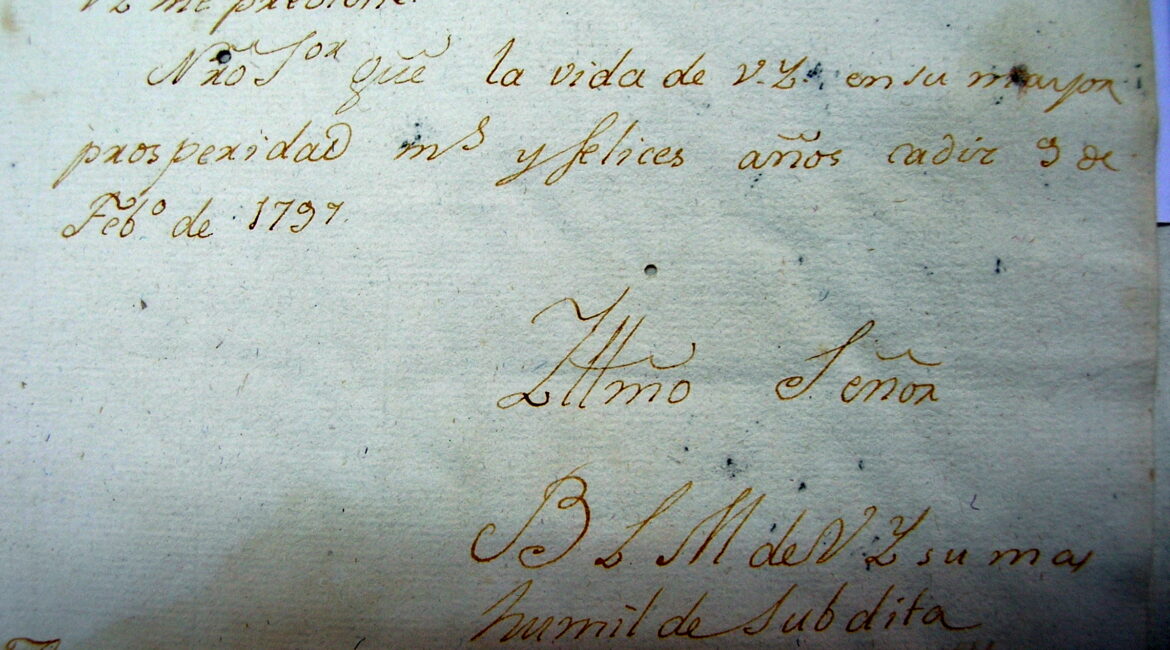 Nro Sor que la vida de V.I. en su mayor
prosperidad ms y felices años cadiz 9 de
Febo de 1797
Illmo Señor
B L M de V I su mas
humilde Subdita